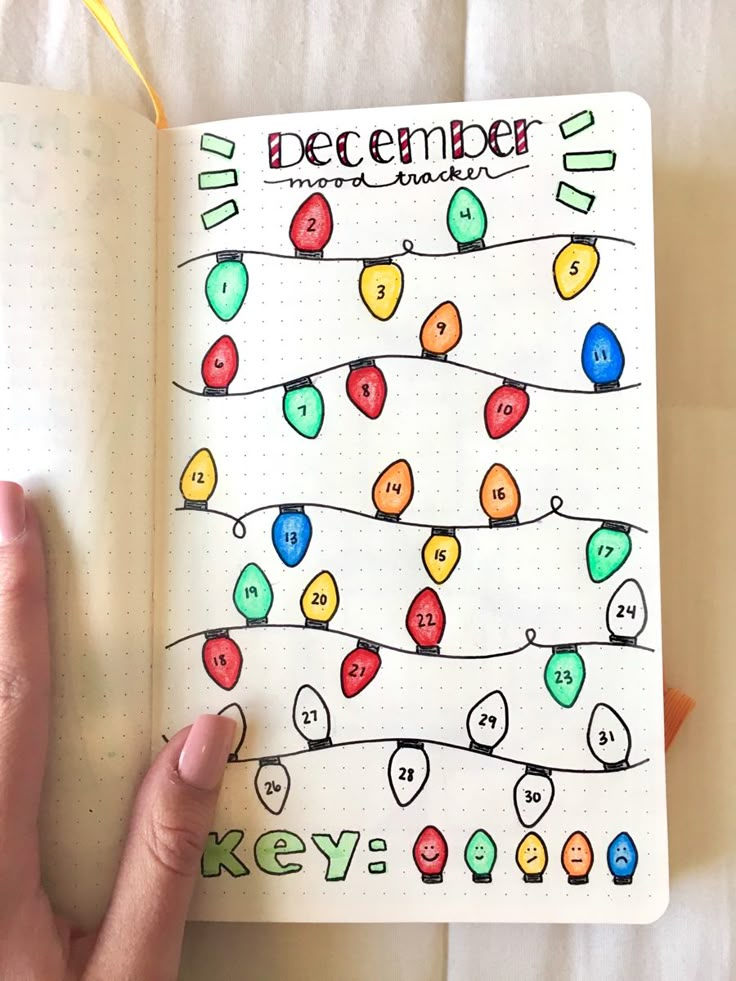 December
mood tracker
2 4
1 3 5
9
6 11
7 8 10
12 14 16
13 15 17
19 20 22 24
18 21 23
27 29 31
26 28 30
Key: